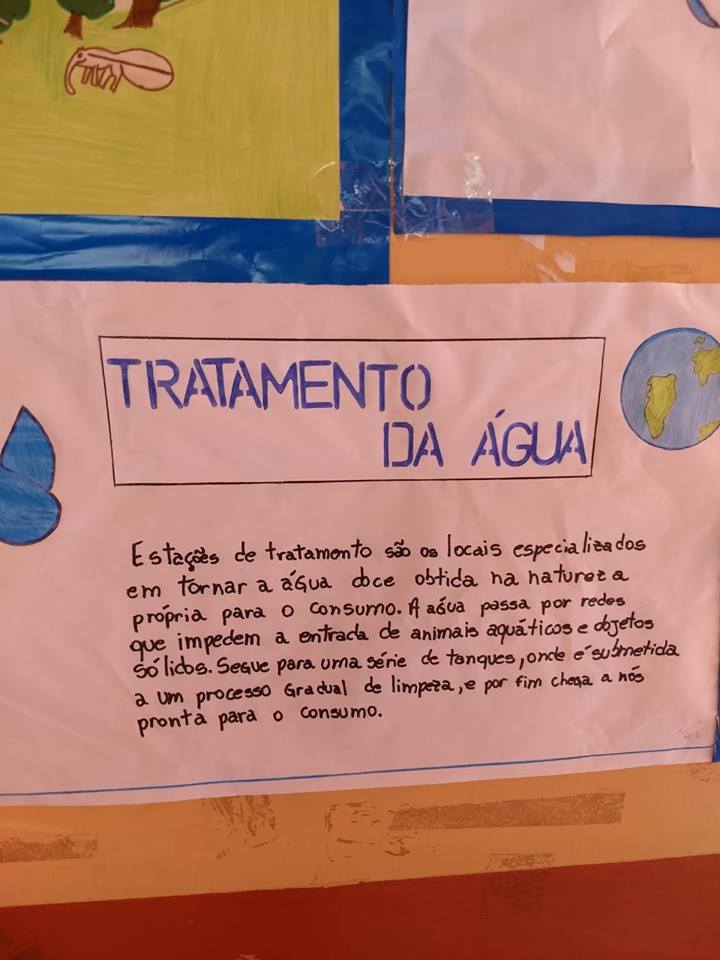 TRATAMENTO
DA ÁGUA
Estações de tratamento são os locais especializados
em tornar a água doce obtida na natureza
própria para o consumo. A água passa por redes
que impedem a entrada de animais aquáticos e objetos
sólidos. Segue para uma série de tanques, onde é submetida
a um processo gradual de limpeza, e por fim chega a nós
pronta para o consumo.